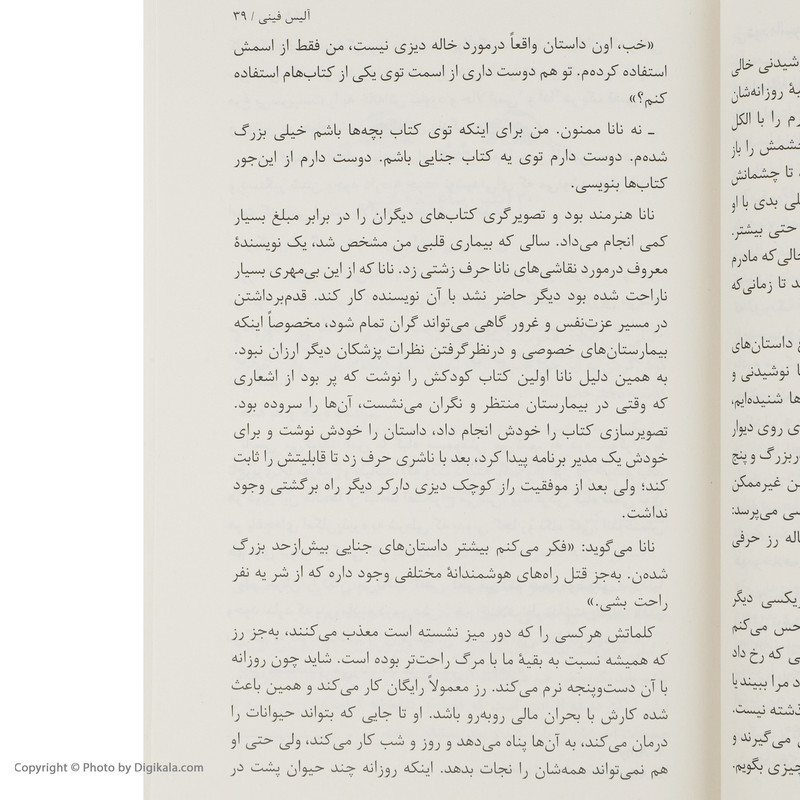 آلیس فینی / ۳۹
«خب، اون داستان واقعاً درمورد خاله دیزی نیست، من فقط از اسمش
استفاده کرده‌م. تو هم دوست داری از اسمت توی یکی از کتاب‌هام استفاده
کنم؟»
ـ نه نانا ممنون. من برای اینکه توی کتاب بچه‌ها باشم خیلی بزرگ
شده‌م. دوست دارم توی یه کتاب جنایی باشم. دوست دارم از این‌جور
کتاب‌ها بنویسی.
نانا هنرمند بود و تصویرگری کتاب‌های دیگران را در برابر مبلغ بسیار
کمی انجام می‌داد. سالی که بیماری قلبی من مشخص شد، یک نویسندهٔ
معروف درمورد نقاشی‌های نانا حرف زشتی زد. نانا که از این بی‌مهری بسیار
ناراحت شده بود دیگر حاضر نشد با آن نویسنده کار کند. قدم‌برداشتن
در مسیر عزت‌نفس و غرور گاهی می‌تواند گران تمام شود، مخصوصاً اینکه
بیمارستان‌های خصوصی و درنظرگرفتن نظرات پزشکان دیگر ارزان نبود.
به همین دلیل نانا اولین کتاب کودکش را نوشت که پر بود از اشعاری
که وقتی در بیمارستان منتظر و نگران می‌نشست، آن‌ها را سروده بود.
تصویرسازی کتاب را خودش انجام داد، داستان را خودش نوشت و برای
خودش یک مدیر برنامه پیدا کرد، بعد با ناشری حرف زد تا قابلیتش را ثابت
کند؛ ولی بعد از موفقیت راز کوچک دیزی دارکر دیگر راه برگشتی وجود
نداشت.
نانا می‌گوید: «فکر می‌کنم بیشتر داستان‌های جنایی بیش‌ازحد بزرگ
شده‌ن. به‌جز قتل راه‌های هوشمندانهٔ مختلفی وجود داره که از شر یه نفر
راحت بشی.»
کلماتش هرکسی را که دور میز نشسته است معذب می‌کنند، به‌جز رز
که همیشه نسبت به بقیهٔ ما با مرگ راحت‌تر بوده است. شاید چون روزانه
با آن دست‌وپنجه نرم می‌کند. رز معمولاً رایگان کار می‌کند و همین باعث
شده کارش با بحران مالی روبه‌رو باشد. او تا جایی که بتواند حیوانات را
درمان می‌کند، به آن‌ها پناه می‌دهد و روز و شب کار می‌کند، ولی حتی او
هم نمی‌تواند همه‌شان را نجات بدهد. اینکه روزانه چند حیوان پشت در
خالی
روزانه‌شان
را با الکل
را باز
تا چشمانش
بدی با او
حتی بیشتر.
که مادرم
تا زمانی‌که
داستان‌های
نوشیدنی و
شنیده‌ایم،
روی دیوار
و پنج
غیرممکن
می‌پرسد:
رز حرفی
دیگر
می‌کنم
که رخ داد
مرا ببیند یا
نیست.
می‌گیرند و
چیزی بگویم.
Copyright © Photo by Digikala.com